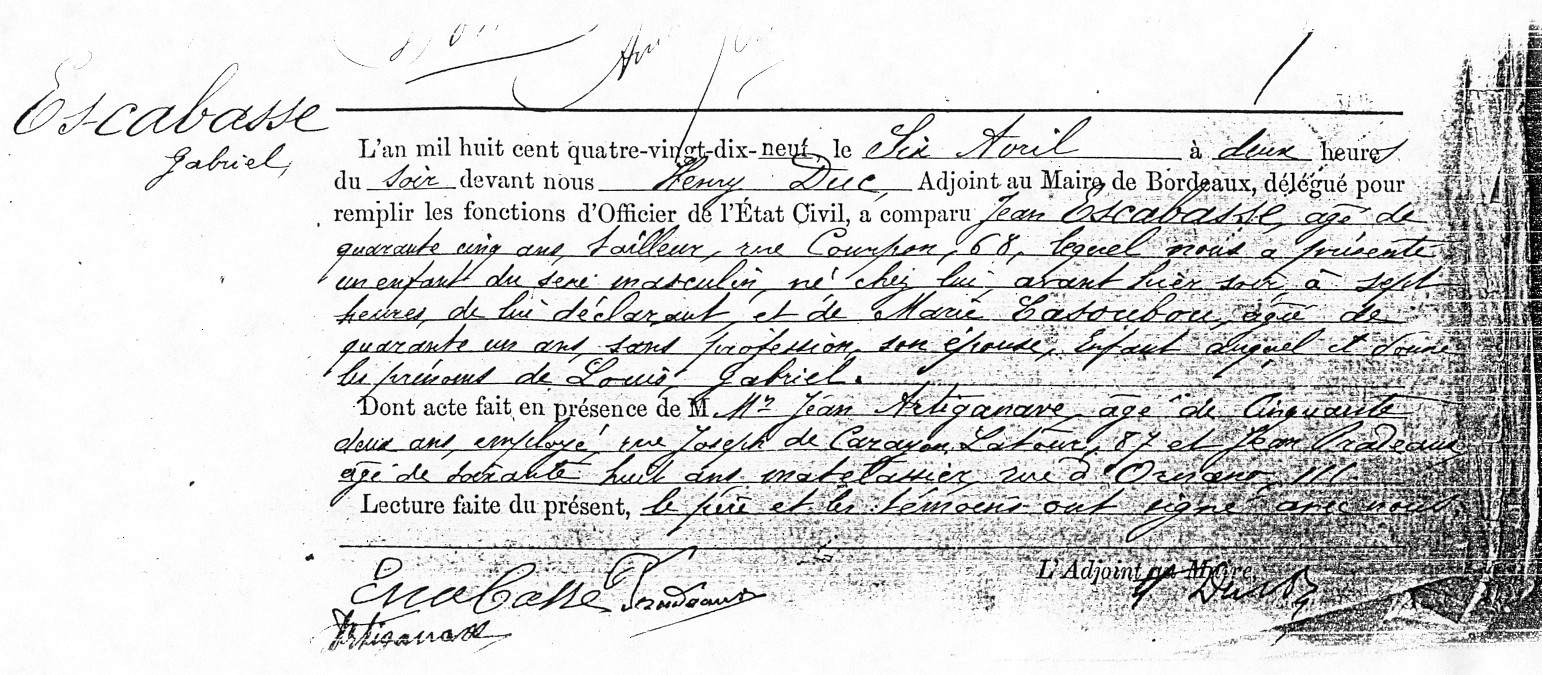 Escabasse
Gabriel,
L'an mil huit cent quatre-vingt-dix-neuf, le Six Avril à deux heures
du soir devant nous Henry Duc, Adjoint au Maire de Bordeaux, délégué pour
remplir les fonctions d'Officier de l'État Civil, a comparu Jean Escabasse, âgé de
quarante cinq ans, tailleur, rue Courpon, 68, lequel nous a présenté
un enfant du sexe masculin, né chez lui, avant hier soir, à sept
heures, de lui déclarant, et de Marie Lasoubou, âgée de
quarante un ans, sans profession, son épouse, Enfant auquel il donne
les prénoms de Louis Gabriel.
Dont acte fait en présence de M. Mr Jean Artiganave, âgé de Cinquante
deux ans, employé, rue Joseph de Carayon Latour, 87 et Jean Pradeaux,
âgé de soixante huit ans, matelassier, rue d'Ornano, 111.
Lecture faite du présent, le père et les témoins ont signé avec nous
L'Adjoint au Maire,
Escabasse Pradeaux